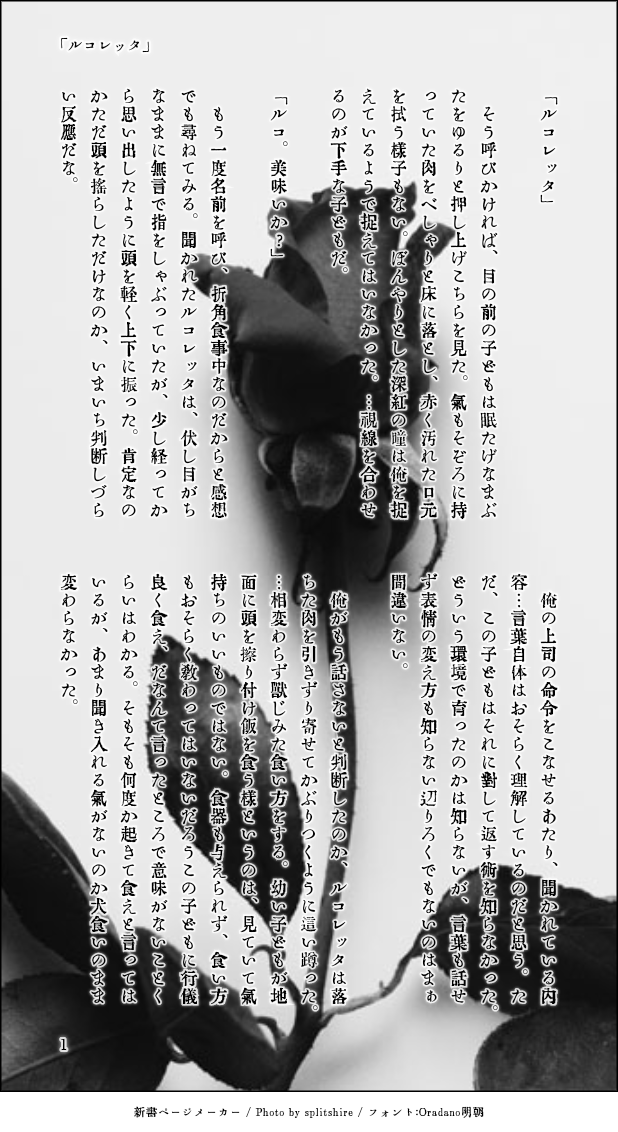 「ルコレッタ」
「ルコレッタ」
そう呼びかければ、目の前の子どもは眠たげなまぶ
たをゆるりと押し上げこちらを見た。氣もそぞろに持
っていた肉をべしゃりと床に落とし、赤く汚れた口元
を拭う樣子もない。ぼんやりとした深紅の瞳は俺を捉
えているようで捉えてはいなかった。…視線を合わせ
るのが下手な子どもだ。
「ルコ。美味いか?」
もう一度名前を呼び、折角食事中なのだからと感想
でも尋ねてみる。聞かれたルコレッタは、伏し目がち
なままに無言で指をしゃぶっていたが、少し経ってか
ら思い出したように頭を軽く上下に振った。肯定なの
かただ頭を搖らしただけなのか、いまいち判斷しづら
い反應だな。
俺の上司の命令をこなせるあたり、聞かれている内
容…言葉自体はおそらく理解しているのだと思う。た
だ、この子どもはそれに對して返す術を知らなかった。
どういう環境で育ったのかは知らないが、言葉も話せ
ず表情の変え方も知らない辺りろくでもないのはまぁ
間違いない。
俺がもう話さないと判斷したのか、ルコレッタは落
ちた肉を引きずり寄せてかぶりつくように這い蹲った。
…相変わらず獸じみた食い方をする。幼い子どもが地
面に頭を擦り付け飯を食う樣というのは、見ていて氣
持ちのいいものではない。食器も与えられず、食い方
もおそらく教わってはいないだろうこの子どもに行儀
良く食え、だなんて言ったところで意味がないことく
らいはわかる。そもそも何度か起きて食えと言っては
いるが、あまり聞き入れる氣がないのか犬食いのまま
変わらなかった。
1
新書ページメーカー / Photo by splitshire / フォント:Oradano明朝